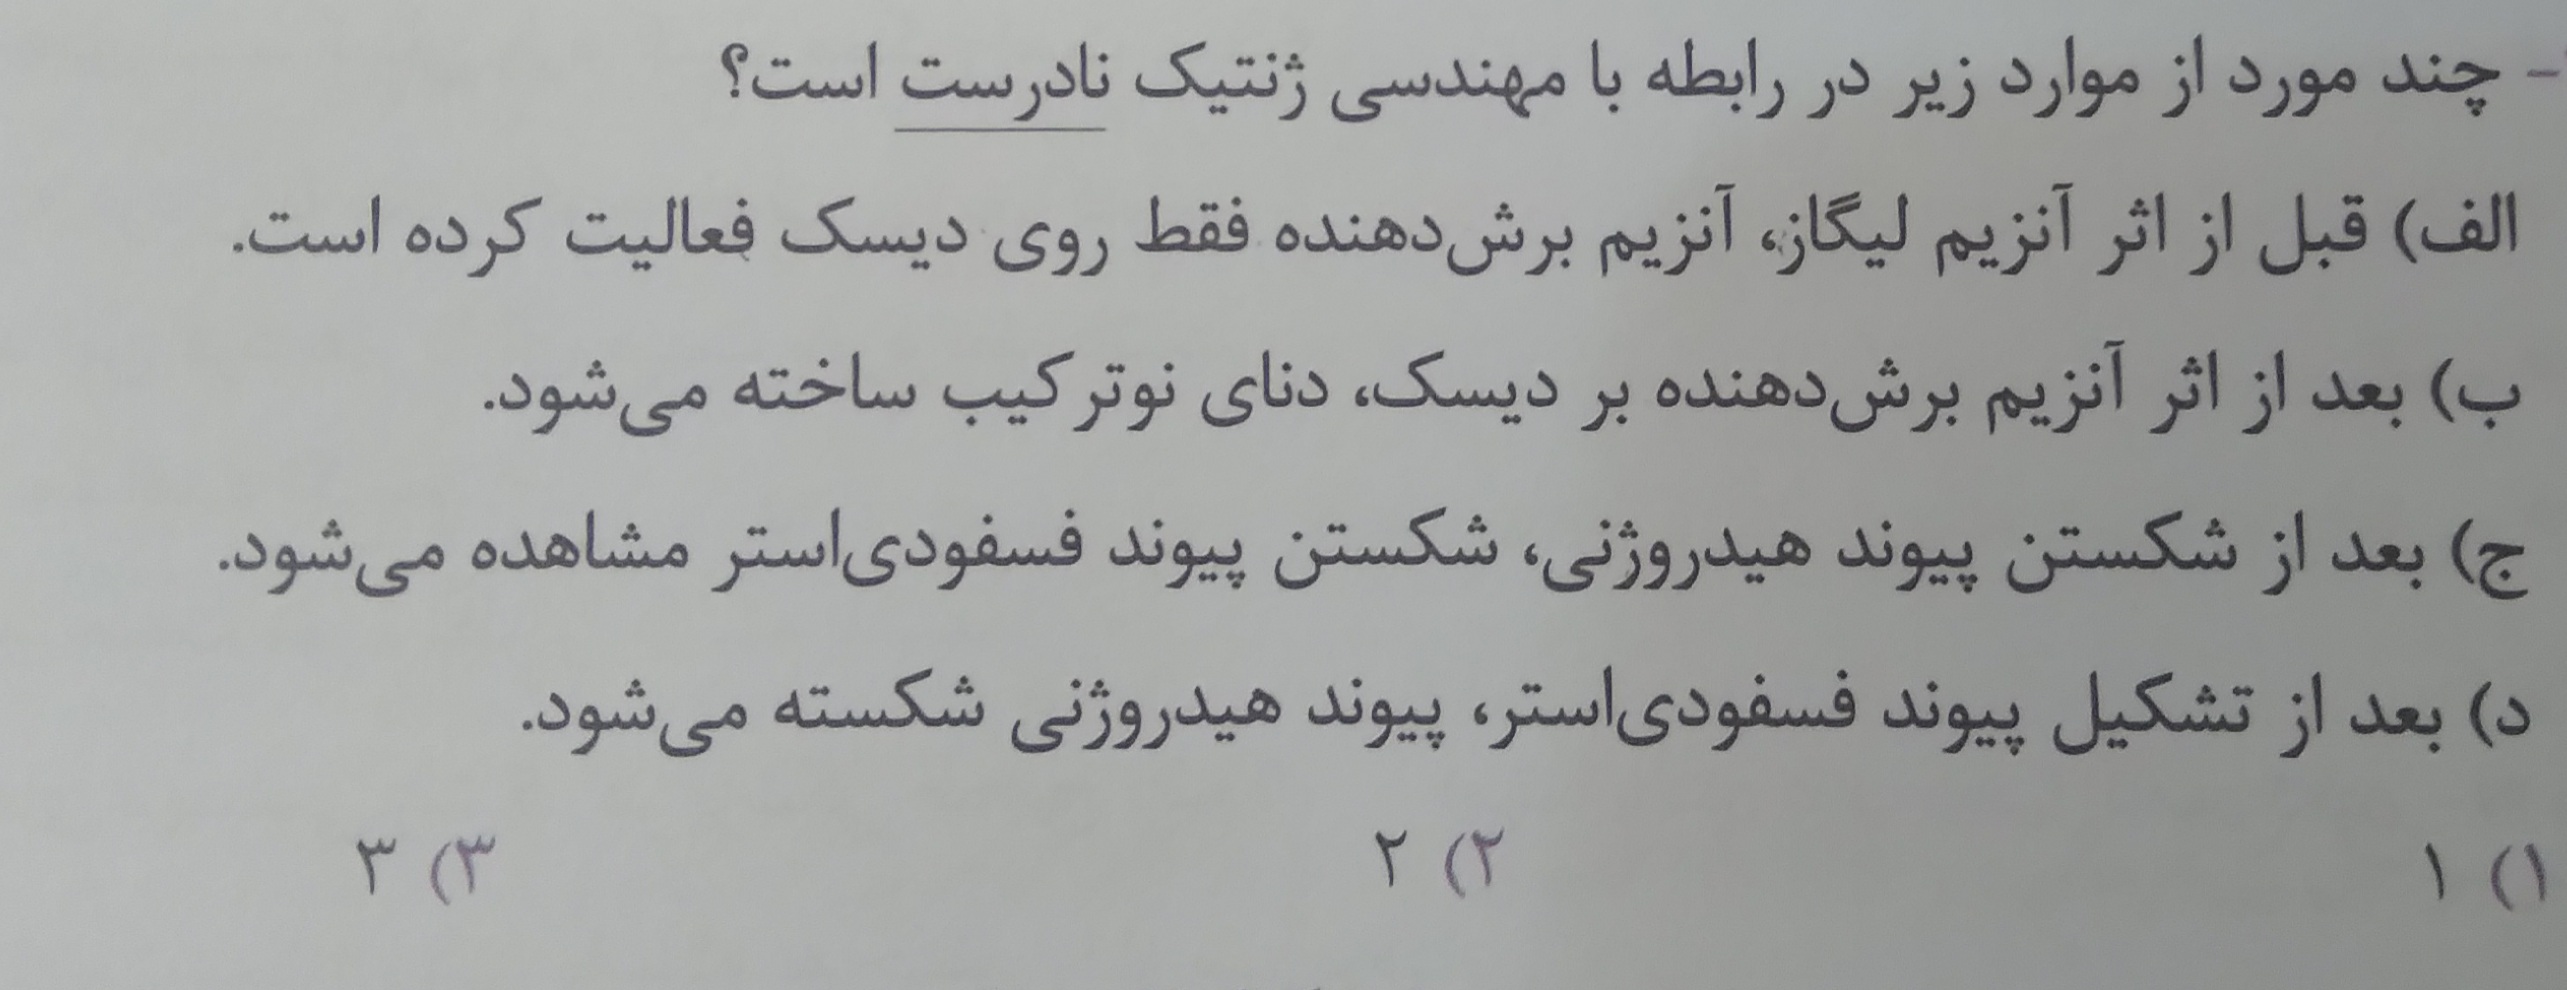 - چند مورد از موارد زیر در رابطه با مهندسی ژنتیک نادرست است؟
الف) قبل از اثر آنزیم لیگاز، آنزیم برش‌دهنده فقط روی دیسک فعالیت کرده است.
ب) بعد از اثر آنزیم برش‌دهنده بر دیسک، دنای نوترکیب ساخته می‌شود.
ج) بعد از شکستن پیوند هیدروژنی، شکستن پیوند فسفودی‌استر مشاهده می‌شود.
د) بعد از تشکیل پیوند فسفودی‌استر، پیوند هیدروژنی شکسته می‌شود.
۱) ۱ ۲) ۲ ۳) ۳